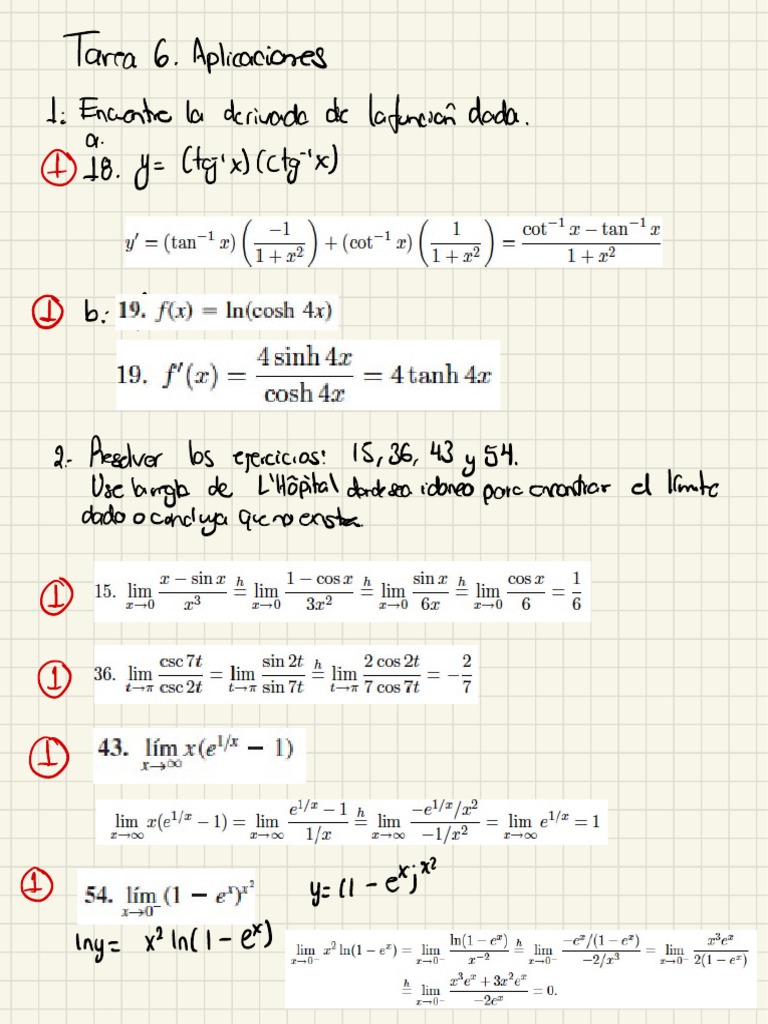 Tarea 6. Aplicaciones
1: Encuentre la derivada de la función dada.
a.
① 18. y = (tg⁻¹x)(ctg⁻¹x)
y' = (tan⁻¹ x) (−1/(1 + x²)) + (cot⁻¹ x) (1/(1 + x²)) = (cot⁻¹ x − tan⁻¹ x)/(1 + x²)
① b: 19. f(x) = ln(cosh 4x)
19. f'(x) = (4 sinh 4x)/(cosh 4x) = 4 tanh 4x
2.- Resolver los ejercicios: 15, 36, 43 y 54.
Use la regla de L'Hôpital donde sea idoneo para encontrar el límite
dado o concluya que no existe.
① 15. lim x→0 (x − sin x)/x³ =ʰ lim x→0 (1 − cos x)/3x² =ʰ lim x→0 (sin x)/6x =ʰ lim x→0 (cos x)/6 = 1/6
① 36. lim t→π (csc 7t)/(csc 2t) = lim t→π (sin 2t)/(sin 7t) =ʰ lim t→π (2 cos 2t)/(7 cos 7t) = −2/7
① 43. lím x→∞ x(e^(1/x) − 1)
lim x→∞ x(e^(1/x) − 1) = lim x→∞ (e^(1/x) − 1)/(1/x) =ʰ lim x→∞ (−e^(1/x)/x²)/(−1/x²) = lim x→∞ e^(1/x) = 1
① 54. lím x→0⁻ (1 − eˣ)^(x²) y = (1 − eˣ)^(x²)
lny = x² ln(1 − eˣ)
lim x→0⁻ x² ln(1 − eˣ) = lim x→0⁻ ln(1 − eˣ)/x⁻² =ʰ lim x→0⁻ (−eˣ/(1 − eˣ))/(−2/x³) = lim x→0⁻ x³eˣ/(2(1 − eˣ))
=ʰ lim x→0⁻ (x³eˣ + 3x²eˣ)/(−2eˣ) = 0.